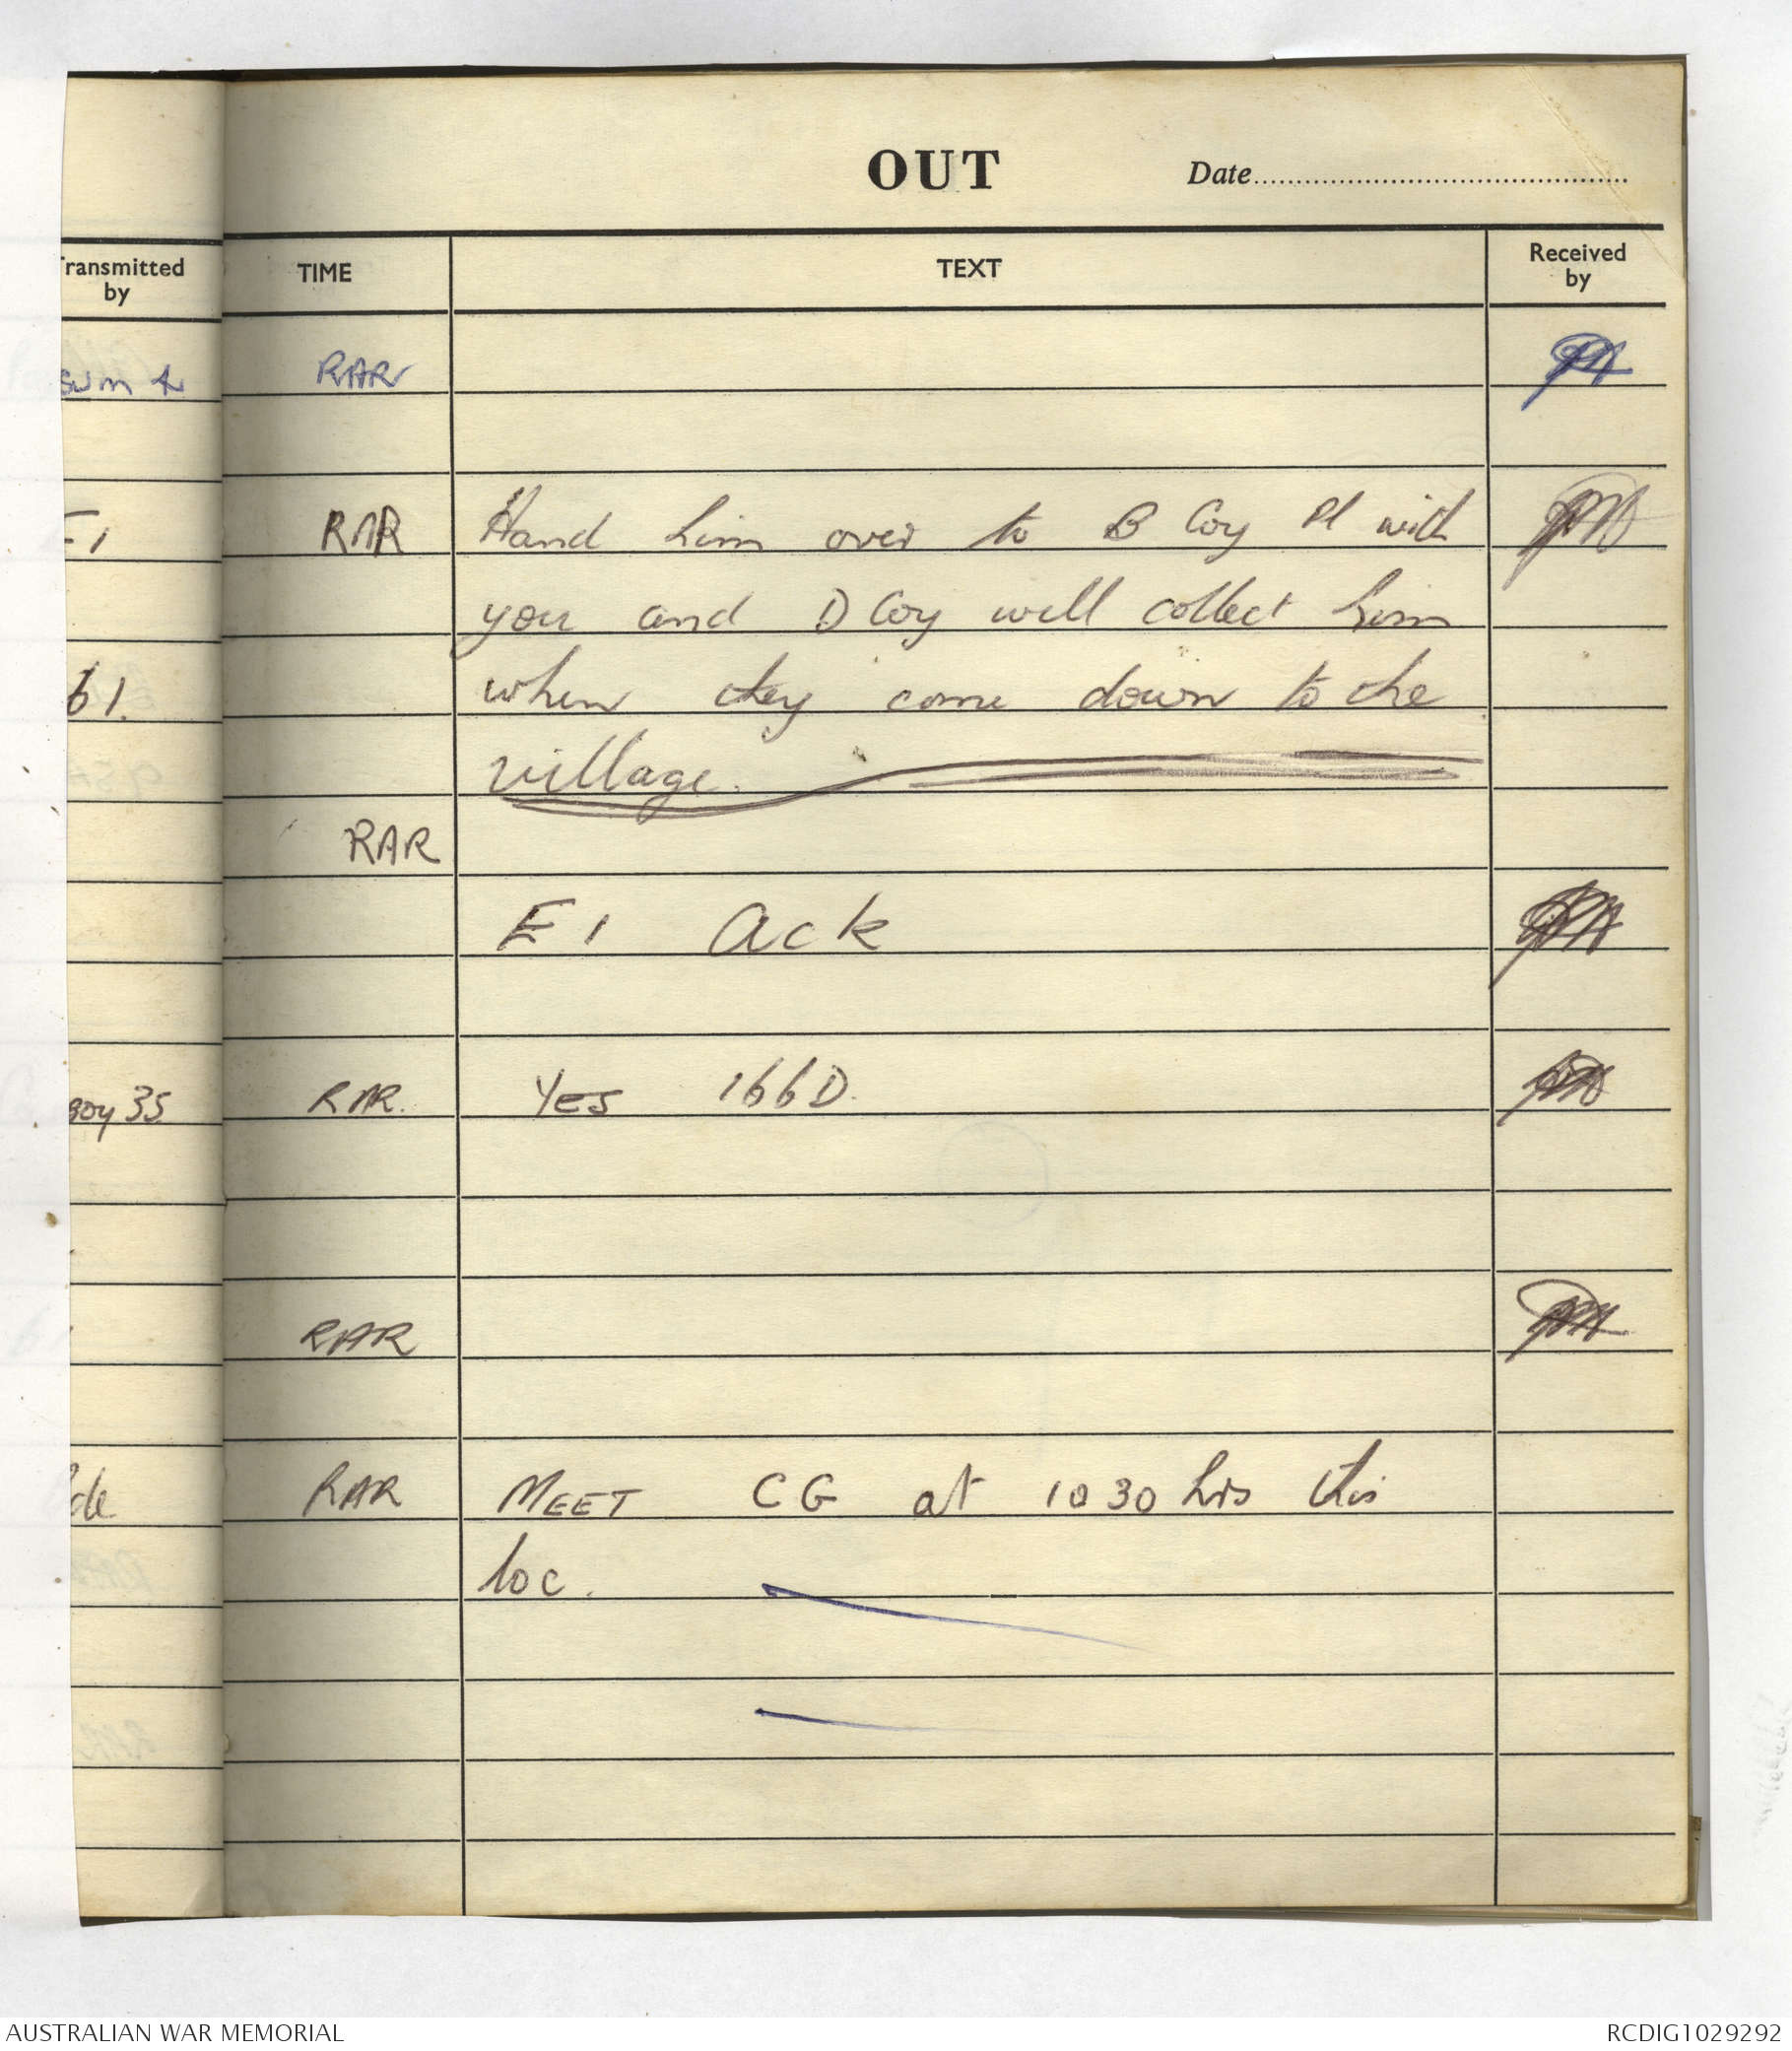 OUT Date
Transmitted by TIME TEXT Received by
RAR
E1 RAR Hand him over to B Coy Pl with
you and D Coy will collect him
61. when they come down to the
village.
RAR
E1 Ack
35 RAR. Yes 166D.
RAR
RAR MEET CG at 1030 hrs this
loc.
AUSTRALIAN WAR MEMORIAL RCDIG1029292